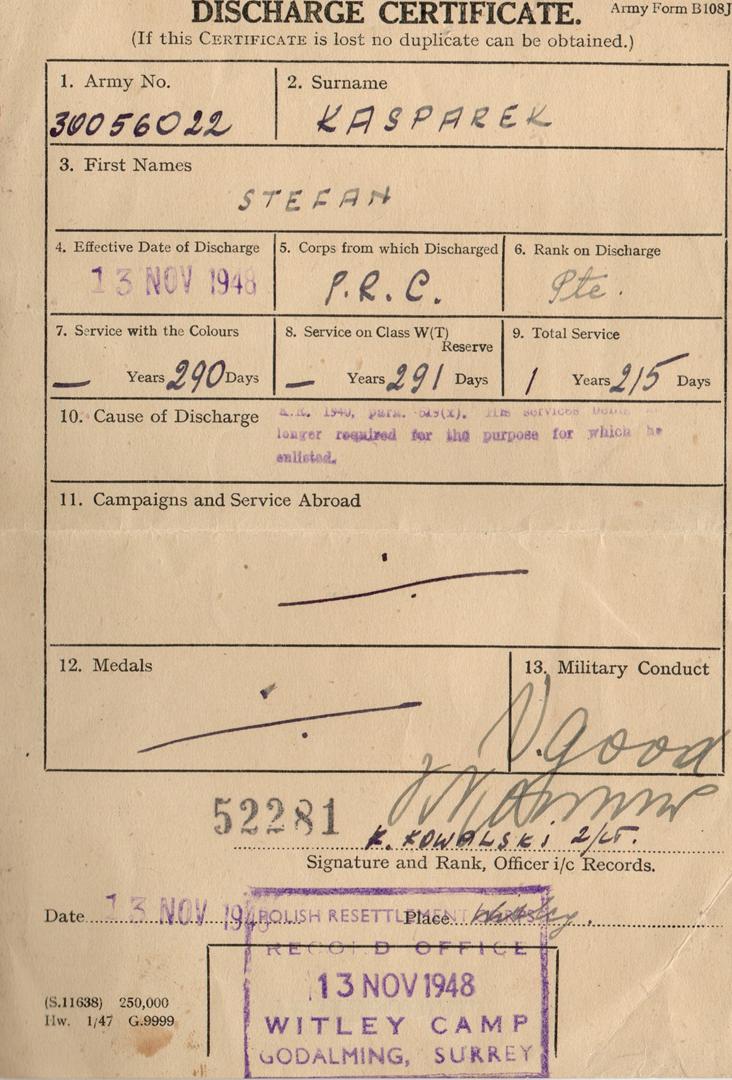 DISCHARGE CERTIFICATE. Army Form B108J
(If this CERTIFICATE is lost no duplicate can be obtained.)
1. Army No. 2. Surname
30056022 KASPAREK
3. First Names
STEFAN
4. Effective Date of Discharge 5. Corps from which Discharged 6. Rank on Discharge
13 NOV 1948 P.R.C. Pte.
7. Service with the Colours 8. Service on Class W(T) Reserve 9. Total Service
— Years 290 Days — Years 291 Days 1 Years 215 Days
10. Cause of Discharge 1940, para. His services
longer required for the purpose for which he
enlisted.
11. Campaigns and Service Abroad
12. Medals 13. Military Conduct
V. good
52281
K. KOWALSKI 2/LT.
Signature and Rank, Officer i/c Records.
Date 13 NOV 1948 Place Witley.
POLISH RESETTLEMENT
RECORD OFFICE
13 NOV 1948
WITLEY CAMP
GODALMING, SURREY
(S.11638) 250,000
Hw. 1/47 G.9999